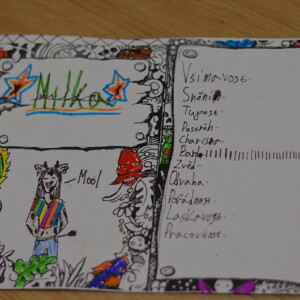 Milka
Mool
Všímavost-
Snění-
Postřeh-
Charisma-
Zvěd-
Odvaha-
Pořádnost-
Laskavost-
Pracovitost-